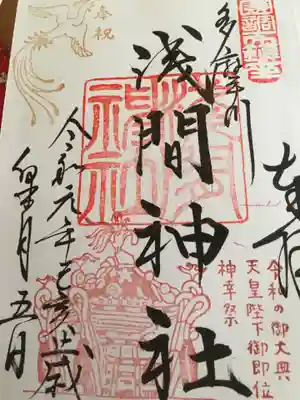 奉拝
令和の御大典
天皇陛下御即位
神幸祭
多摩川
浅間神社
令和元年己亥歳
皐月五日
奉祝